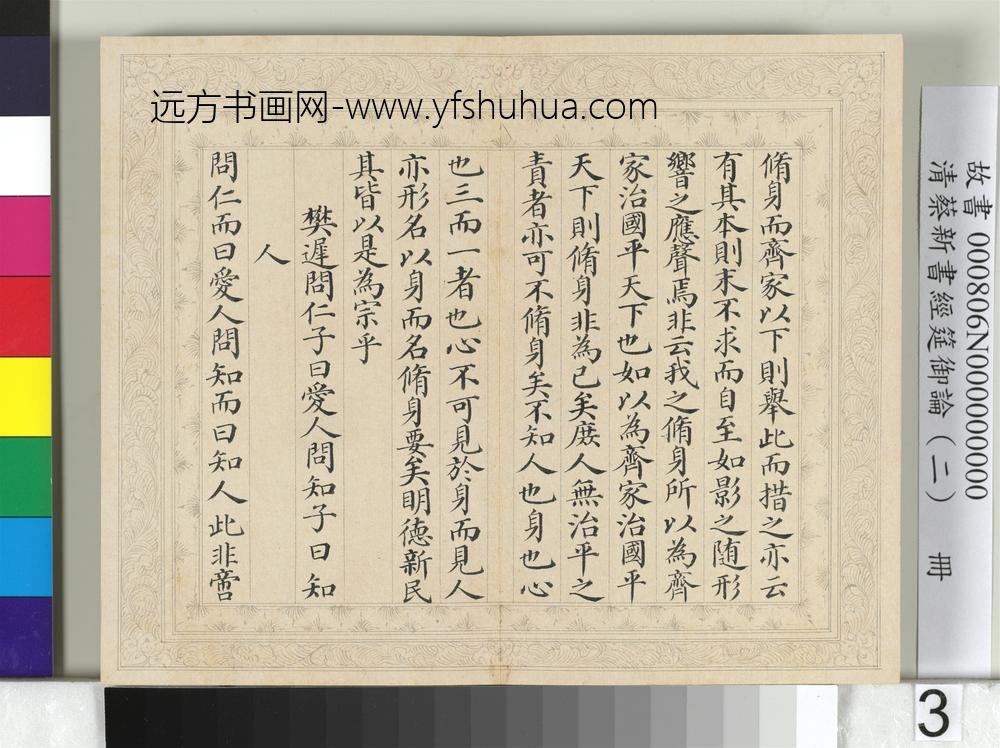 远方书画网-www.yfshuhua.com
脩身而齊家以下則舉此而措之亦云
有其本則末不求而自至如影之随形
響之應聲焉非云我之脩身所以為齊
家治國平天下也如以為齊家治國平
天下則脩身非為己矣庶人無治平之
責者亦可不脩身矣不知人也身也心
也三而一者也心不可見於身而見人
亦形名以身而名脩身要矣明德新民
其皆以是為宗乎
樊遲問仁子曰愛人問知子曰知
人
問仁而曰愛人問知而曰知人此非啻
故書 000806N000000000
清蔡新書經筵御論(二) 冊
3